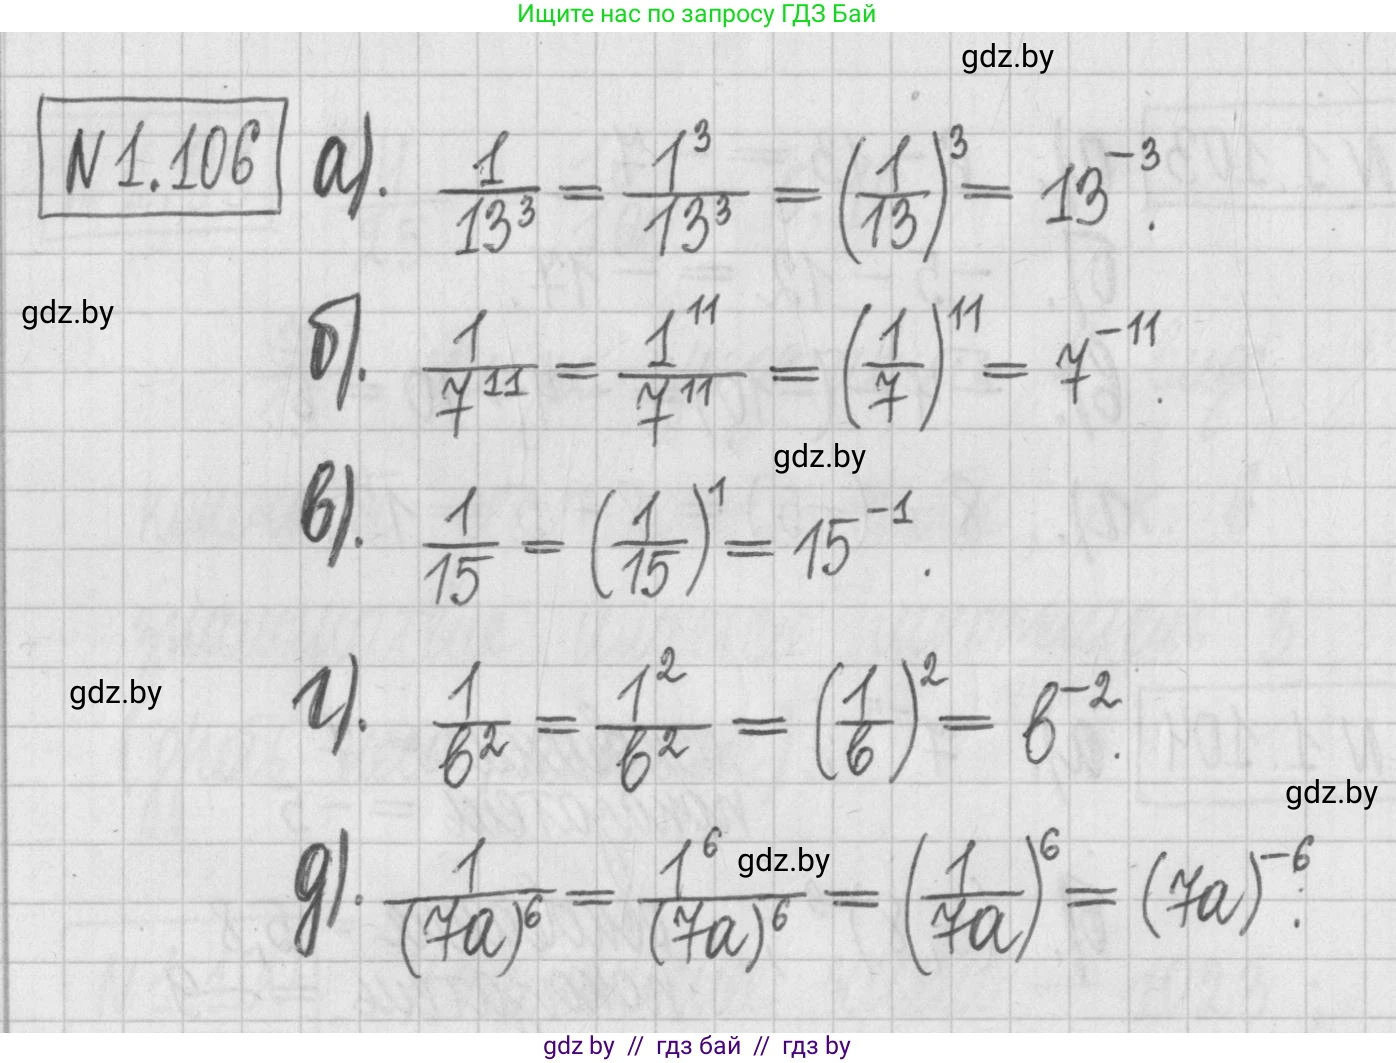 Ищите нас по запросу ГДЗ Бай
gdz.by
N 1.106 а). 1/13³ = 1³/13³ = (1/13)³ = 13⁻³.
gdz.by
б). 1/7¹¹ = 1¹¹/7¹¹ = (1/7)¹¹ = 7⁻¹¹.
gdz.by
в). 1/15 = (1/15)¹ = 15⁻¹.
г). 1/b² = 1²/b² = (1/b)² = b⁻².
gdz.by
gdz.by
д). 1/(7a)⁶ = 1⁶/(7a)⁶ = (1/7a)⁶ = (7a)⁻⁶.
gdz.by
gdz by // гдз бай // гдз by